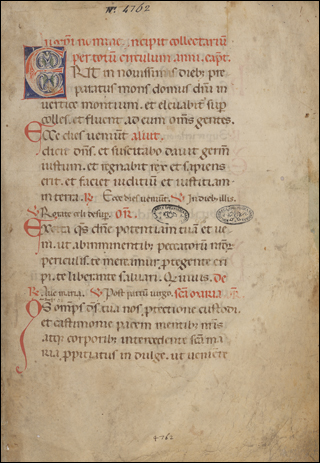 nᵒ. 4762
incipit collectariū
per totū circulum anni. capt̄.
ERIT in nouissimis dieb; pre
paratus mons domus dn̄i in
uertice montium. et eleuabit̄ sup
colles. et fluent ad eum om̄s gentes.
Ecce dies ueniunt aliut.
dicit dn̄s. et suscitabo dauit germ̄
iustum. et regnabit rex et sapiens
erit. et faciet iudiciū et iustitiam
in terra. R̄ Ecce dies ueniūt. V̄ In dieb; illis.
V̄ Rorate celi desup. OR̄.
Excita q̄s dn̄e potentiam tuā et ue
ni. ut ab imminentib; peccatorū nr̄or̄
periculis. te mereamur protegente eri
pi. te liberante saluari. Qui uiuis. de
R̄ Aue maria. V̄ Post partū uirgo. sc̄a maria or̄
OS omps ds̄. tua nos ꝓtectione custodi.
et castimonie pacem mentib; nr̄is
atq; corporib; intercedente sc̄a ma
ria ꝓpitiatus indulge. ut ueniente
4762